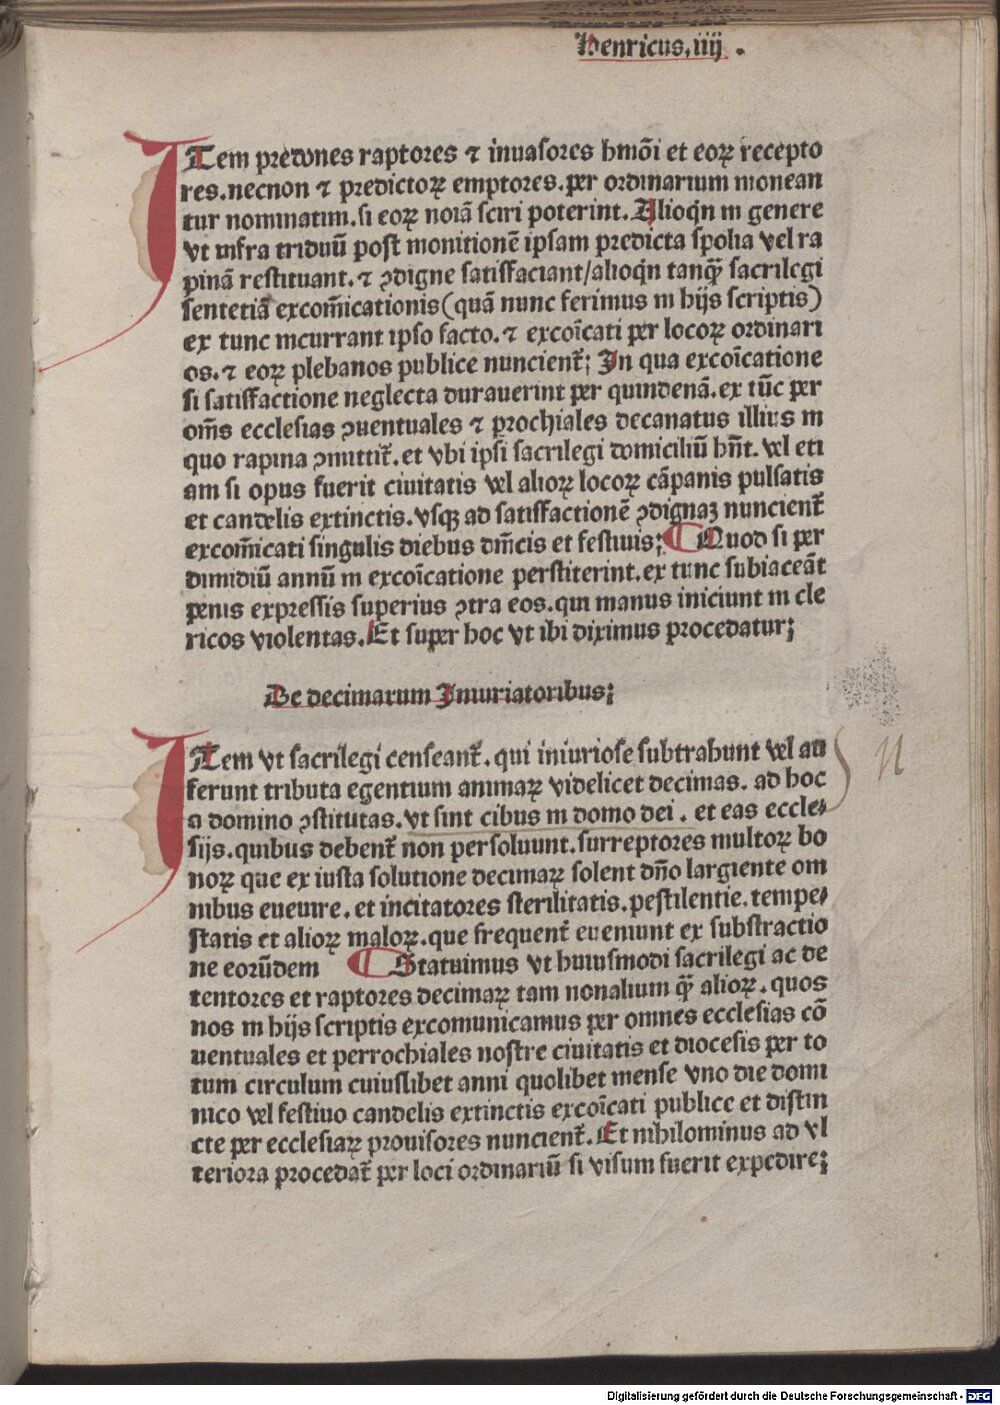 Henricus.iiij .
ITem predones raptores ⁊ inuasores hmõi et eoꝝ recepto
res.necnon ⁊ predictoꝝ emptores.per ordinarium monean
tur nominatim.si eoꝝ noĩa sciri poterint. Alioqn in genere
vt infra triduũ post monitionẽ ipsam predicta spolia vel ra
pinã restituant.⁊ ꝯdigne satisfaciant/alioqn tanqꝫ sacrilegi
sentẽtiã excom̃icationis(quã nunc ferimus in hijs scriptis)
ex tunc incurrant ipso facto.⁊ excoĩcati per locoꝝ ordinari
os.⁊ eoꝝ plebanos publice nuncient̃; In qua excoĩcatione
si satisfactione neglecta durauerint per quindenã.ex tũc per
om̃s ecclesias ꝯuentuales ⁊ ꝑrochiales decanatus illius in
quo rapina ꝯmittit̃.et vbi ipsi sacrilegi domiciliũ hñt.vel eti
am si opus fuerit ciuitatis vel alioꝝ locoꝝ cãpanis pulsatis
et candelis extinctis.vsqꝫ ad satisfactionẽ ꝯdignaꝫ nuncient̃
excom̃icati singulis diebus dñicis et festiuis; ¶ Quod si per
dimidiũ annũ in excoĩcatione perstiterint.ex tunc subiaceãt
penis expressis superius ꝯtra eos.qui manus iniciunt in cle
ricos violentas.Et super hoc vt ibi diximus procedatur;
De decimarum Iniuriatoribus;
ITem vt sacrilegi censeant̃.qui iniuriose subtrahunt vel au
ferunt tributa egentium animaꝝ videlicet decimas. ad hoc
a domino ꝯstitutas.vt sint cibus in domo dei . et eas eccle⸗
sijs.quibus debent̃ non persoluunt.surreptores multoꝝ bo
noꝝ que ex iusta solutione decimaꝝ solent dño largiente om
nibus euenire.et incitatores sterilitatis.pestilentie.tempe⸗
statis et alioꝝ maloꝝ.que frequent̃ eueniunt ex substractio
ne eorũdem ¶ Statuimus vt huiusmodi sacrilegi ac de
tentores et raptores decimaꝝ tam nonalium qꝫ alioꝝ.quos
nos in hijs scriptis excomunicamus per omnes ecclesias cõ
uentuales et perrochiales nostre ciuitatis et diocesis per to
tum circulum cuiuslibet anni quolibet mense vno die domi
nico vel festiuo candelis extinctis excoĩcati publice et distin
cte per ecclesiaꝝ prouisores nuncient̃.Et nihilominus ad vl
teriora procedat̃ per loci ordinariũ si visum fuerit expedire;
Digitalisierung gefördert durch die Deutsche Forschungsgemeinschaft - DFG